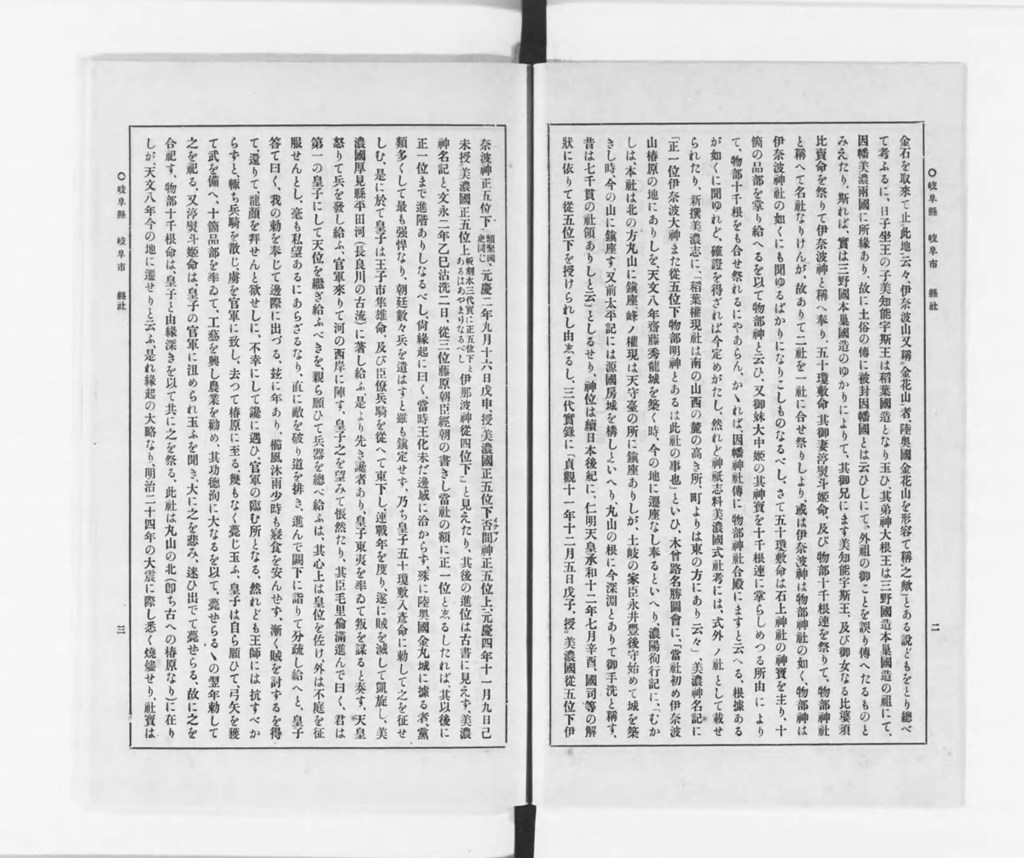 ○岐阜縣　岐阜市　縣社
二
金石を取來て止此地云々伊奈波山又稱金花山者陸奧國金花山を形容て稱之歟」とある說どもをとり總べ
て考ふるに、日子坐王の子美知能宇斯王は稻葉國造となり玉ひ、其弟神大根王は三野國造本巢國造の祖にて、
因幡美濃兩國に所緣あり、故に土俗の傳に被封因幡國とは云ひしにて、外祖の御ことを誤り傳へたるものと
みえたり、斯れば、實は三野國本巢國造のゆかりによりて、其御兄にます美知能宇斯王、及び御女なる比婆須
比賣命を祭りて伊奈波神と稱へ奉り、五十瓊敷命、其御妻渟熨斗姬命、及び物部十千根連を祭りて、物部神社
と稱へて名社なりけんが、故ありて二社を一社に合せ祭りしより、或は伊奈波神は物部神社の如く、物部神は
伊奈波神社の如くにも聞ゆるばかりになりこしものなるべし、さて五十瓊敷命は石上神社の神寶を主り、十
箇の品部を掌り給へるを以て物部神と云ひ、又御妹大中姬の其神寶を十千根連に掌らしめつる所由により
て、物部十千根をも合せ祭れるにやあらん、かゝれば、因幡神社傳に物部神社合殿にますと云へる、根據ある
が如くに聞ゆれど、確證を得ざれば今定めがたし、然れど神祇志料美濃國式社考には、式外ノ社として載せ
られたり、新撰美濃志に、「稻葉權現社は南の山西の麓の高き所、町よりは東の方にあり云々」美濃神名記に
「正一位伊奈波大神また從五位下物部明神とあるは此社の事也」といひ、木曾路名勝圖會に、「當社初め伊奈波
山椿原の地にありしを、天文八年齋藤秀龍城を築く時、今の地に遷座なし奉るといへり、濃陽徇行記に、「むか
しは、本社は北の方丸山に鎭座、峰ノ權現は天守臺の所に鎭座ありしが、土岐の家臣永井豐後守始めて城を築
きし時、今の山に鎭座す、又前太平記には源國房城を構しといへり、丸山の根に今深淵とありて御手洗と稱す、
昔は七千貫の社領ありしと云」としるせり、神位は續日本後紀に、仁明天皇承和十二年七月辛酉、國司等の解
狀に依りて從五位下を授けられし由志るし、三代實錄に「貞觀十一年十二月五日戊子、授美濃國從五位下伊
奈波神正五位下類聚國史同じ元慶二年九月十六日戊申、授美濃國正五位下否間神正五位上元慶四年十一月九日己
未授美濃國正五位上板刻本三代實に正五位下とあるはあやまりなるべし伊那波神從四位下」と見えたり、其後の進位は古書に見えず、美濃
神名記と、文永二年乙巳沽洗二日、從三位藤原朝臣經朝の書きし當社の額に正一位と志るしたれば其以後に
正一位まで進階ありしなるべし、尙緣起に曰く、當時王化未だ邊域に洽からず、殊に陸奧國金丸城に據る者、黨
類多くして最も强悍なり、朝廷數々兵を遣はすと雖も鎭定せず、乃ち皇子五十瓊敷入彥命に勅して之を征せ
しむ、是に於て皇子は王子市隼雄命及び臣僚兵騎を從へて東下し、連戰年を度り、遂に賊を滅して凱旋し、美
濃國厚見縣平田河(長良川の古流)に著し給ふ、是より先き讒者あり、皇子東夷を率ゐて叛を謀ると奏す、天皇
怒りて兵を發し給ふ、官軍來りて河の西岸に陣す、皇子之を望みて悵然たり、其臣毛里倫滿進んで曰く、君は
第一の皇子にして天位を繼ぎ給ふべきを、親ら願ひて兵器を總べ給ふは、其心上は皇位を佐け外は不庭を征
服せんとし、毫も私望あるにあらざるなり、直に敵を破り道を排き、進んで闕下に詣りて分疏し給へと、皇子
答て曰く、我の勅を奉じて邊際に出づる、玆に年あり、櫛風沐雨少時も寢食を安んせず、漸く賊を討するを得
て、還りて龍顏を拜せんと欲せしに、不幸にして讒に遇ひ、官軍の臨む所となる、然れども王師には抗すべか
らずと、輙ち兵騎を散じ、虜を官軍に致し、去つて椿原に至る、幾もなく薨じ玉ふ、皇子は自ら願ひて弓矢を獲
て武を備へ、十箇品部を率ゐて、工藝を興し農業を勸め、其功德洵に大なるを以て、薨せらるゝの翌年勅して
之を祀る、又渟熨斗姬命は、皇子の官軍に沮められ玉ふを聞き、大に之を悲み、迷ひ出でて薨せらる、故に之を
合祀す、物部十千根命は、皇子と由緣深きを以て共に之を祭る、此社は丸山の北(卽ち古への椿原なり)に在り
しが、天文八年今の地に遷せりと云ふ、是れ緣起の大略なり、明治二十四年の大震に際し悉く燒燼せり、社寶は
○岐阜縣　岐阜市　縣社
三